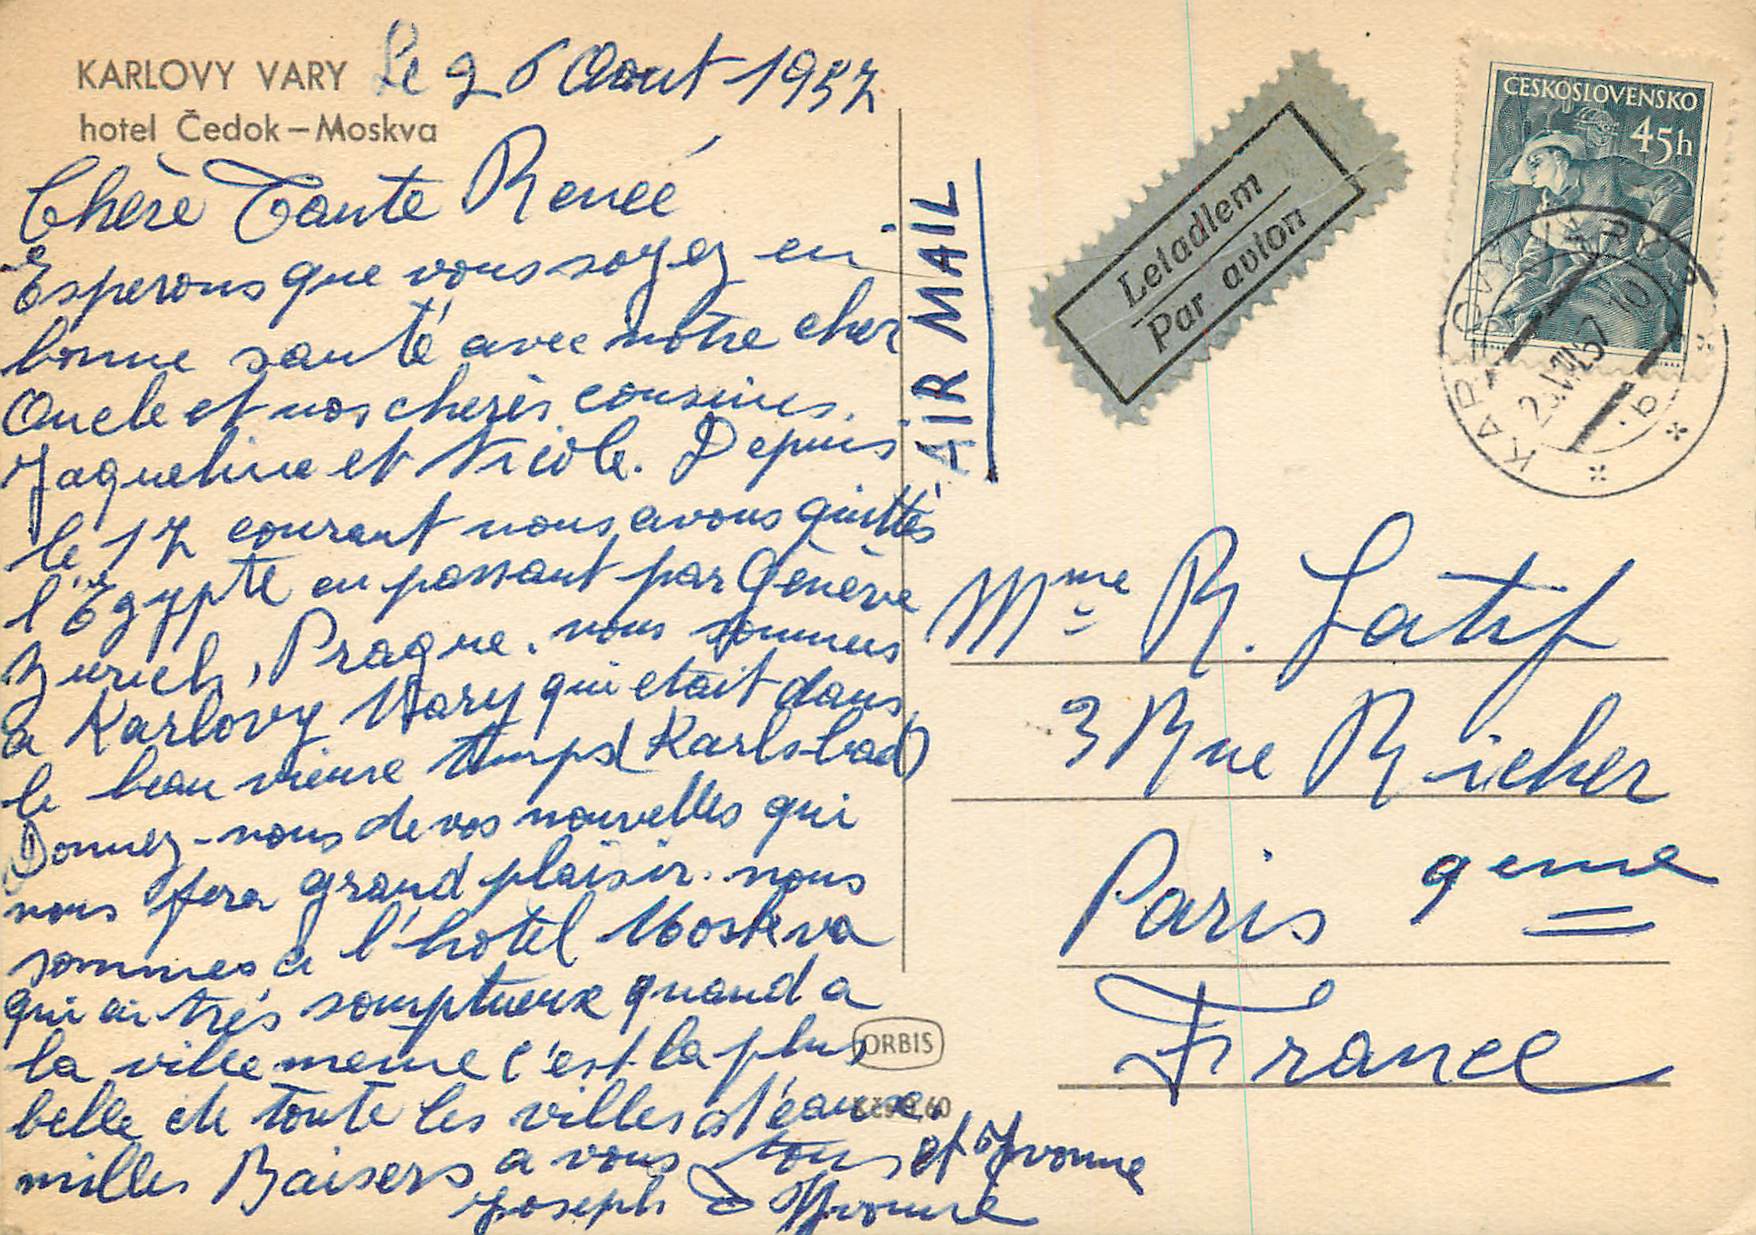 KARLOVY VARY
hotel Čedok – Moskva
Le 26 Aout 1957
Chère Tante Renée
Esperons que vous soyez en
bonne santé avec notre cher
Oncle et nos cherès cousines.
Jaqueline et Nicole. Depuis
le 17 courant nous avons quittès
l'Egypte en passant par Génève
Zurich, Prague. nous sommes
a Karlovy Vary qui etait dans
le beau vieux temps (Karlsbad)
Donnez-nous de vos nouvelles qui
nous fera grand plaisir. nous
sommes a l'hotel Moskva
qui est très somptueux quand a
la ville meme c'est la plus
belle de toute les villes d'eaux.
milles Baisers a vous tous et Yvonne
Joseph & Yvonne
ORBIS
Kčs 0,60
AIR MAIL
Letadlem
Par avion
ČESKOSLOVENSKO
45h
KARLOVY VARY
.VIII.57 10
Mme R. Latif
3 Rue Richer
Paris 9eme
France